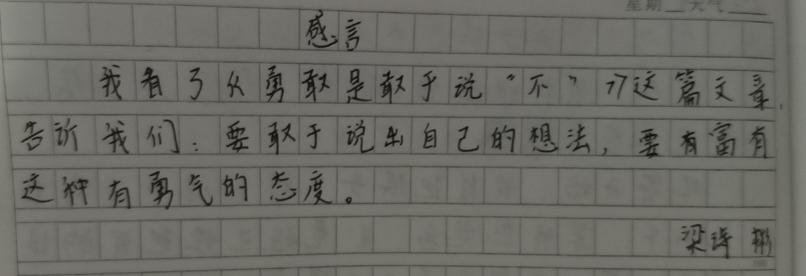 星期 天气
感言
我看了《勇敢是敢于说“不”》这篇文章,
告诉我们：要敢于说出自己的想法，要有富有
这种有勇气的态度。
梁诗彬